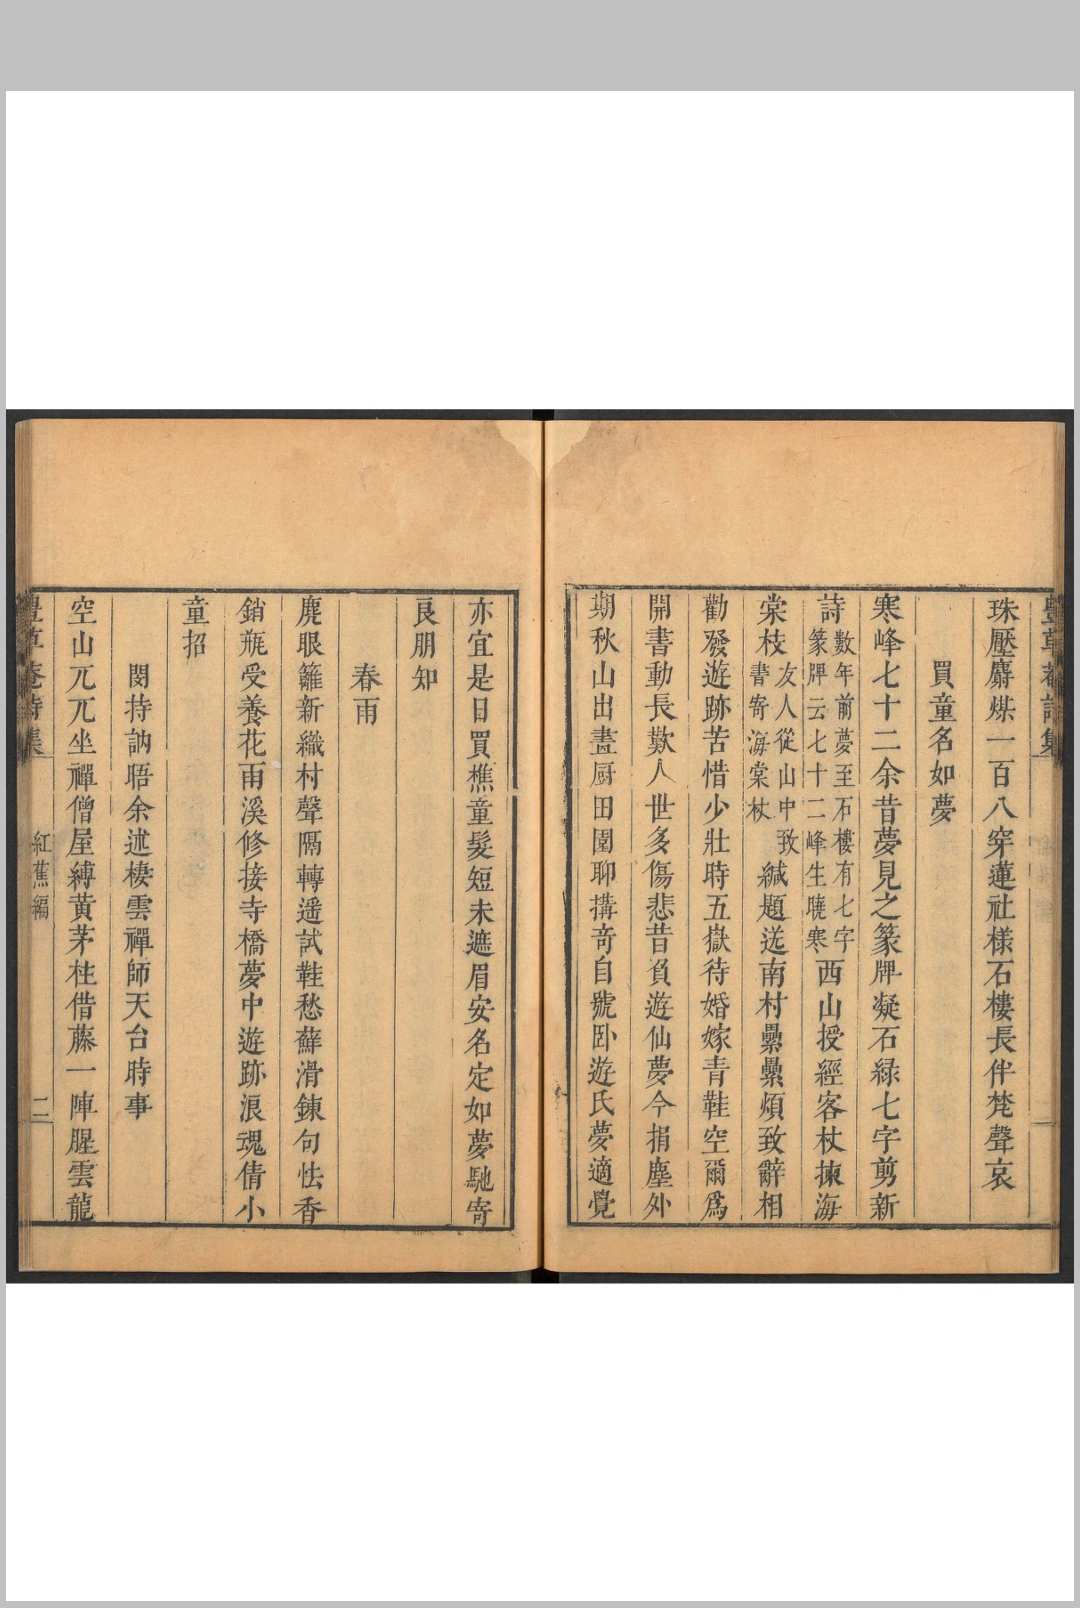 豐草菴詩集
珠壓麝煤一百八穿蓮社樣石樓長伴梵聲哀
買童名如夢
寒峰七十二余昔夢見之篆牌凝石緑七字剪新
詩數年前夢至石樓有七字篆牌云七十二峰生曉寒西山授經客杖揀海
棠枝友人從山中致書寄海棠杖緘題送南村纍纍煩致辭相
勸發遊跡苦惜少壯時五嶽待婚嫁青鞋空爾爲
開書動長歎人世多傷悲昔負遊仙夢今捐塵外
期秋山出畫厨田園聊搆竒自號卧遊氏夢適覺
亦宜是日買樵童髮短未遮眉安名定如夢馳寄
良朋知
春雨
麂眼籬新織村聲隔轉遥試鞋愁蘚滑錬句怯香
銷瓶受養花雨溪修接寺橋夢中遊跡浪魂倩小
童招
閔持訥晤余述棲雲禪師天台時事
空山兀兀坐禪僧屋縛黄茅柱借藤一陣腥雲龍
豐草菴詩集
紅蕉編
二